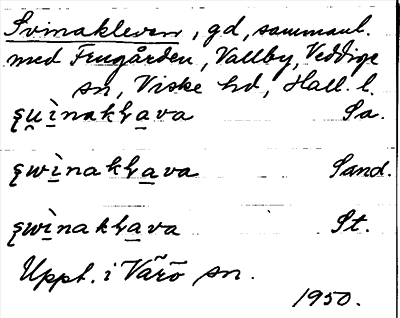 Svinakleven, gd, sammanl.
med Frugården, Vallby, Veddige
sn, Viske hd, Hall. l.
Sa.
Sand.
St.
Uppt. i Värö sn.
1950.